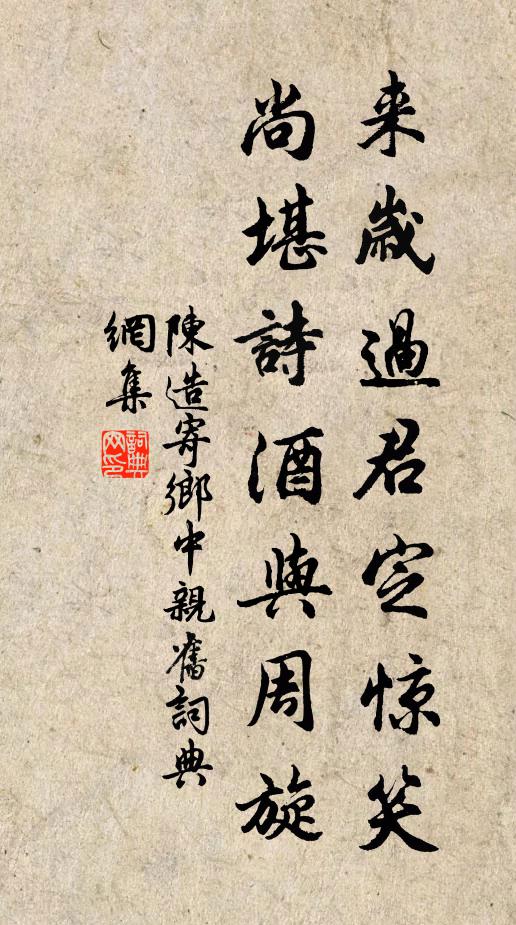 来歲過君定惊笑
尚堪詩酒與周旋
陳造寄鄉中親舊詞典
網集
詞典網印